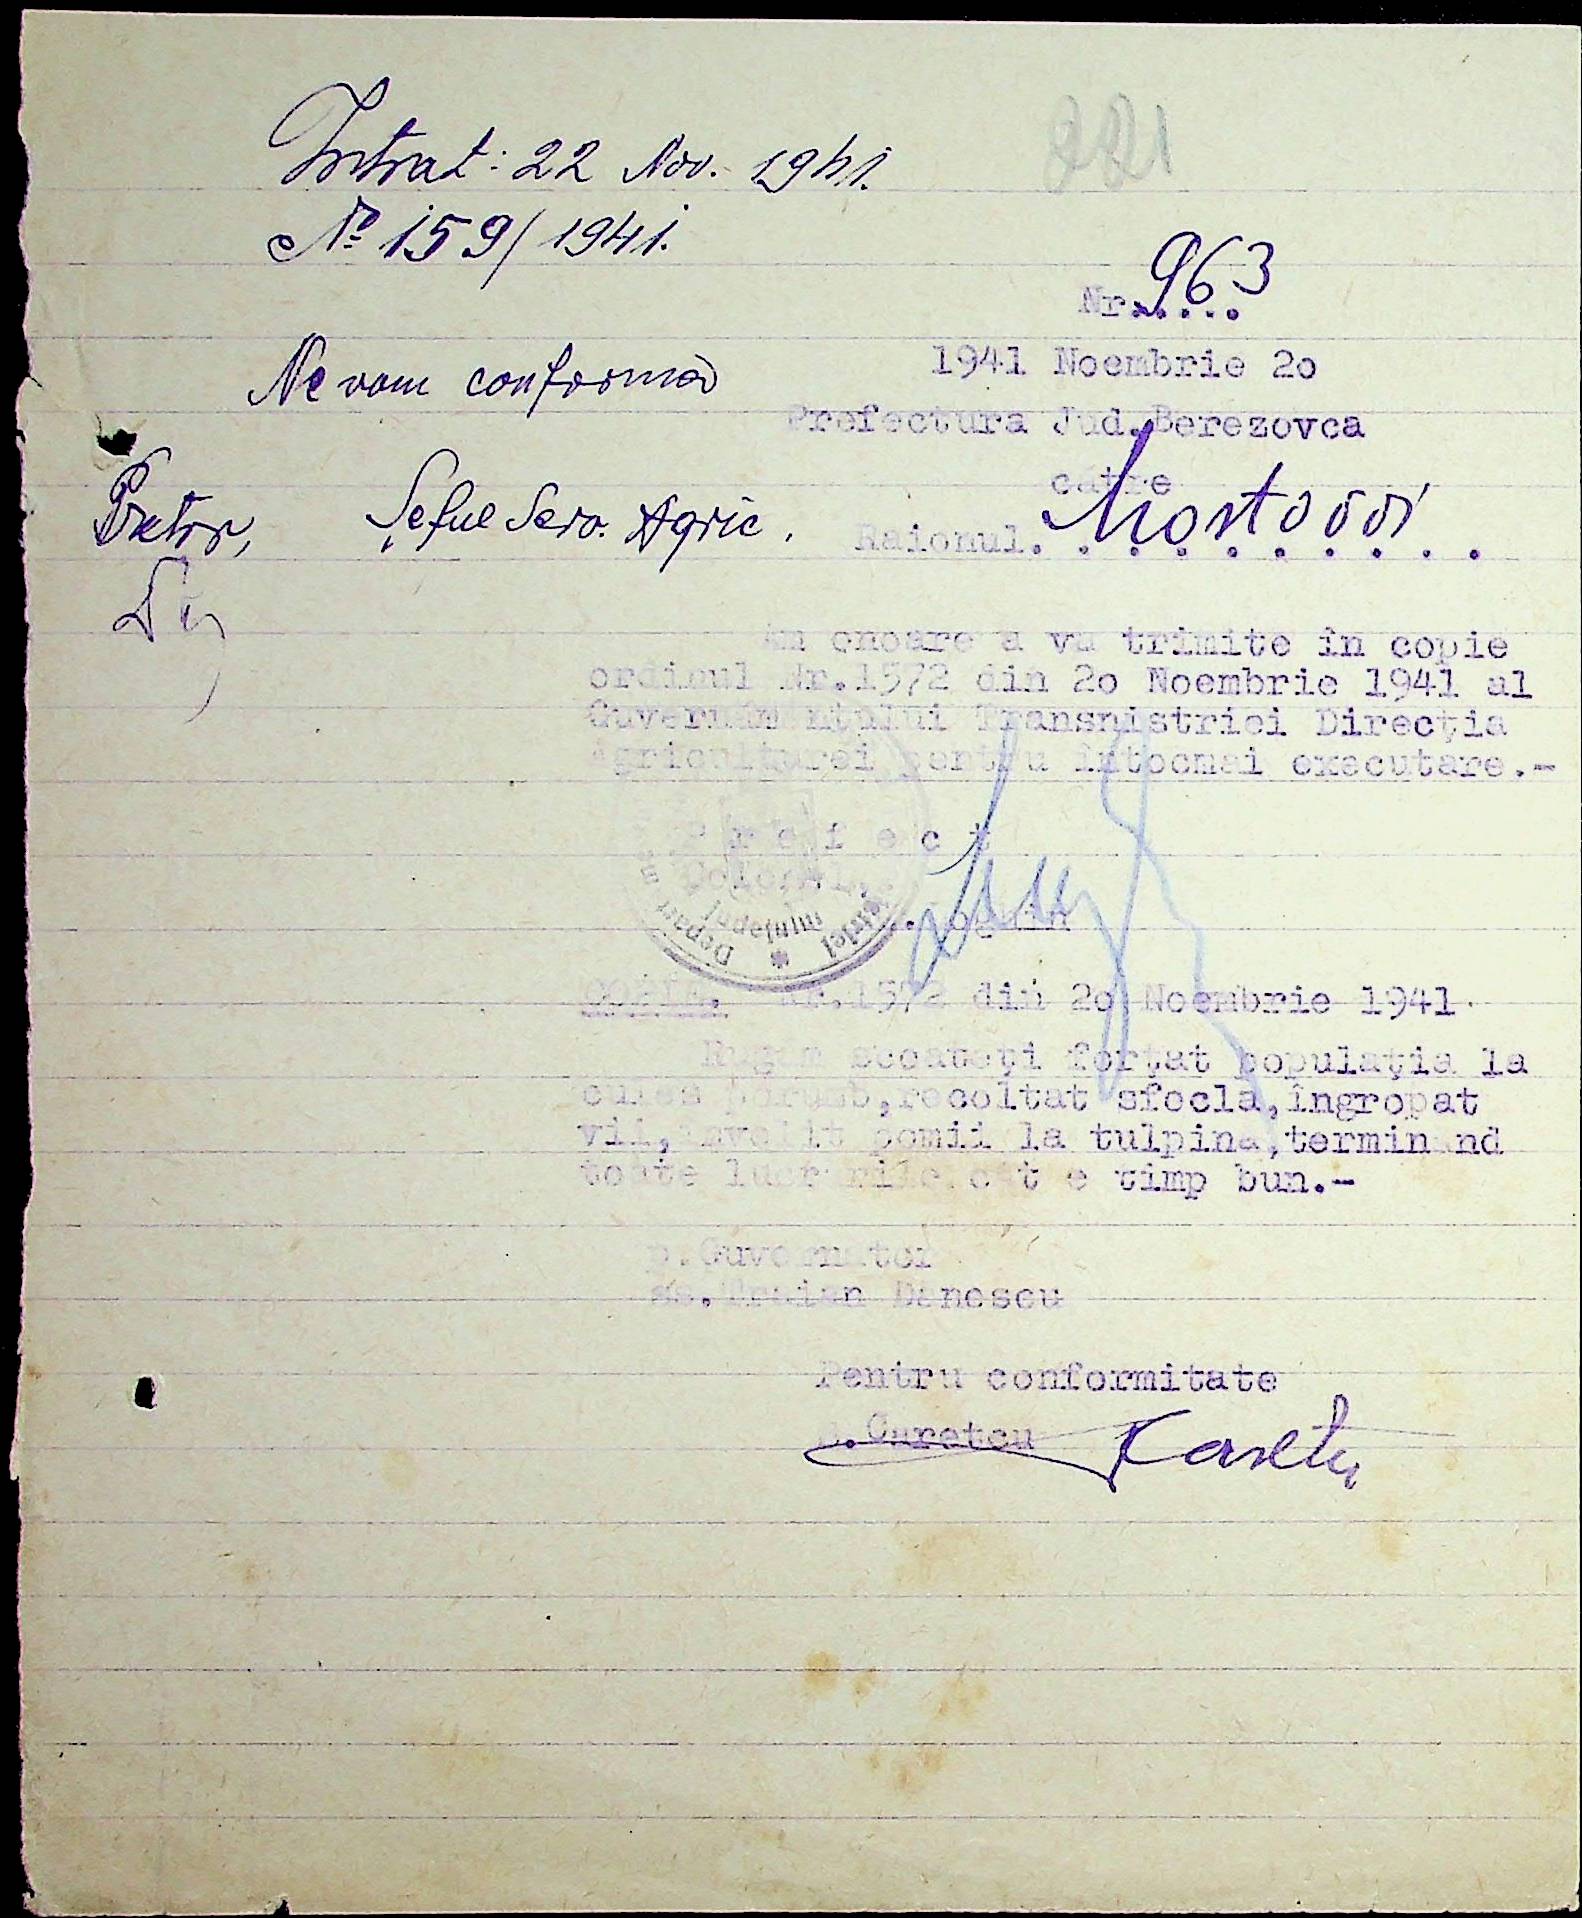 221
Intrat: 22 Nov. 1941.
№ 159/1941.
Nr. 963
1941 Noembrie 2o
Ne vom conforma
Prefectura Jud.Berezovca
către
Pretor, Șeful Serv. Agric.
Raionul. Mostovoi
Am onoare a vă trimite în copie
ordinul Nr.1572 din 2o Noembrie 1941 al
Guvernământului Transnistriei Direcția
Agriculturei pentru întocmai executare.-
P r e f e c t
Colonel,
Județului
COPIE. Nr.1572 din 2o Noembrie 1941.
Rugăm scoateți forțat populația la
cules porumb,recoltat sfecla,îngropat
vii,învelit pomii la tulpină,terminând
toate lucrările cât e timp bun.-
p.Guvernator
ss.Traian Dănescu
Pentru conformitate
Caretcu